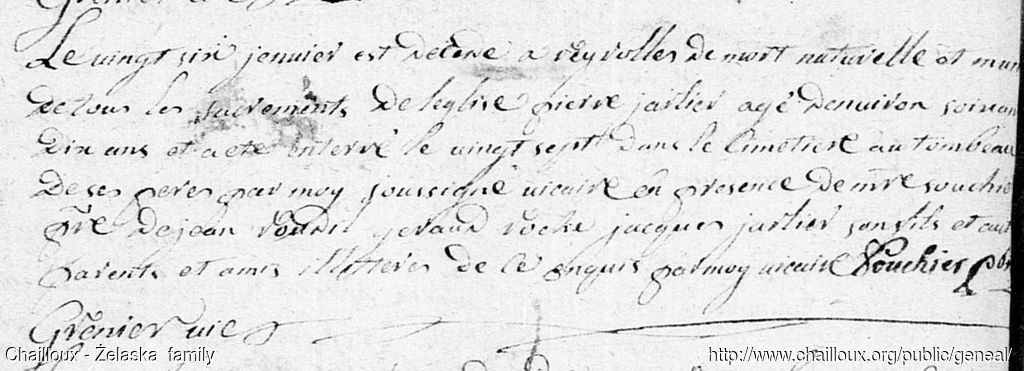 Le vingt six jenvier est décédé a veyrolles de mort naturelle et muni
de tous les sacrements de leglise pierre jarlier agé denuiron soixan
dix ans et a eté enterré le vingt sept dans le cimetiere au tombeau
de ses peres par moy soussigné vicaire en presence de mre souchie
pre de jean geraud roche jacques jarlier son fils et aut
parents et amis illitteres de ce enquis par moy vicaire Souchier pbr
Grenier vic
Chailloux - Żelaska family
http://www.chailloux.org/public/geneal/